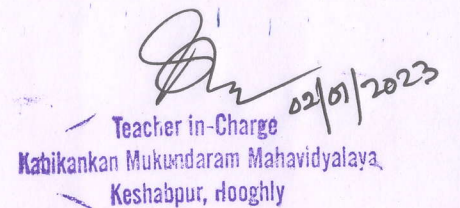 02/01/2023
Teacher in-Charge
Kabikankan Mukundaram Mahavidyalaya
Keshabpur, Hooghly